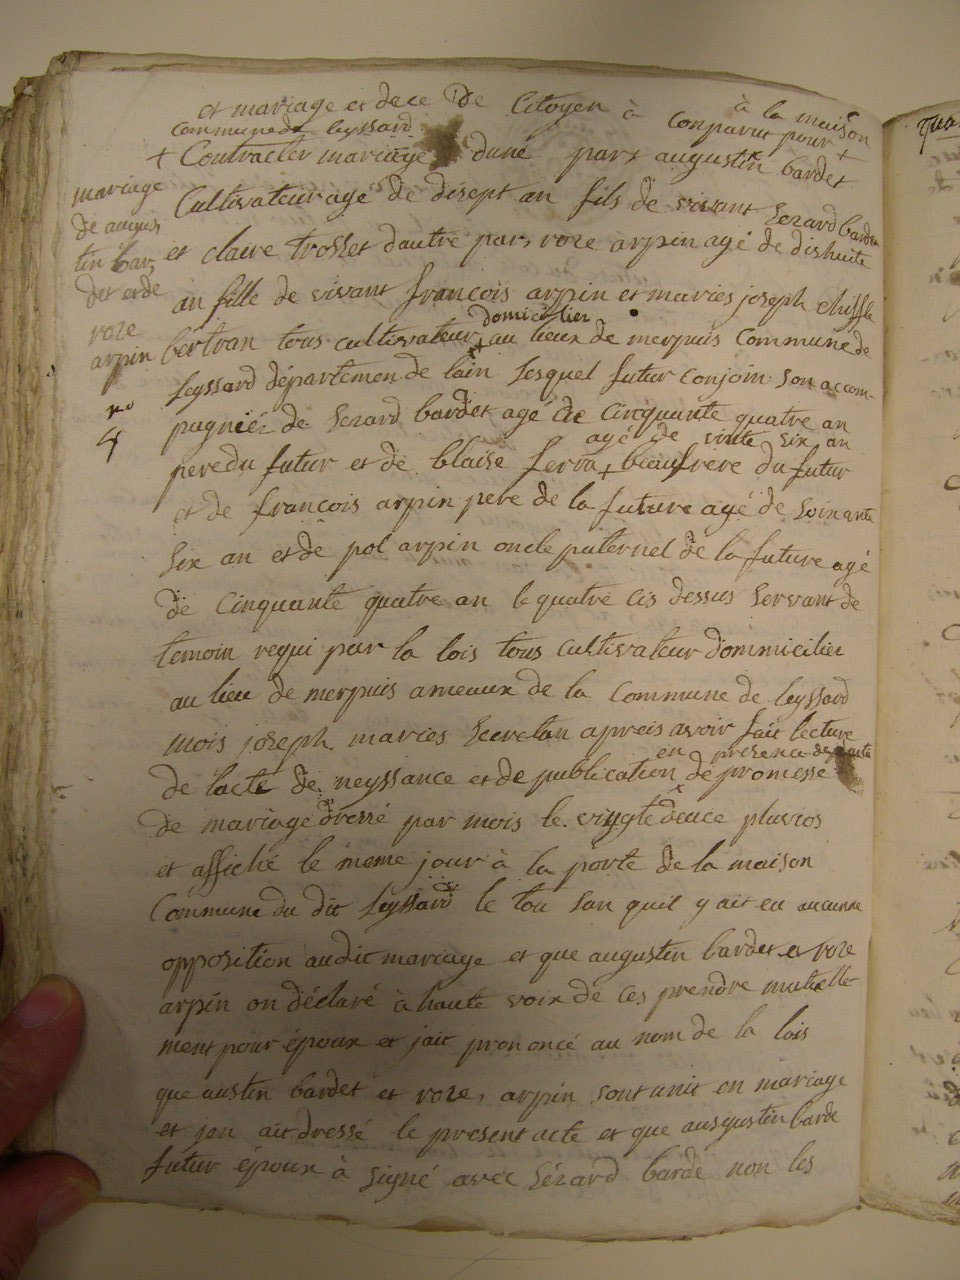 et mariage et dece de Citoyen à conparut pour +
à la maison
commune de leyssard
+ Contracter mariage dune part augustin bardet
mariage
de augus
tin bar
det et de
roze
arpin
no
4
Cultivateur agé de disept an fils de vivant Sezard bardet
et claire trosset dautre par, roze arpin agé de dishuite
an fille de vivant françois arpin et maries joseph chiffle
bertran tous cultivateur + au lieux de merpuis Commune de
domicilier
leyssard département de lain lesquel futur conjoin son accom-
pagniéz de Sezard bardet agé de Cinquante quatre an
pere du futur et de blaise ferra + beaufrere du futur
agé de vinte six an
et de françois arpin pere de la future agé de soixante
six an et de pol arpin oncle paternel de la future agé
de Cinquante quatre an le quatre cis dessus servant de
temoin requi par la lois tous cultivateur dommicilier
au lieu de merpuis ameaux de la Commune de leyssard
mois joseph maries secretan apreis avoir fait lecture
en presence de
de lacte de neyssance et de publication x de promesse
de mariage dressé par mois le vingte deuce pluvios
et affiché le meme jour à la porte de la maison
Commune du dit leyssard le tou san quil y ait eu aucunne
opposition audit mariage et que augustin bardet et roze
arpin on déclaré à haute voix de ces prendre mutuelle
ment pour époux et jait prononcé au nom de la lois
que austin bardet et roze, arpin sont unit en mariage
et jen ait dressé le present acte et que ausgustin barde
futur époux à signé avec Sézard bardé non les